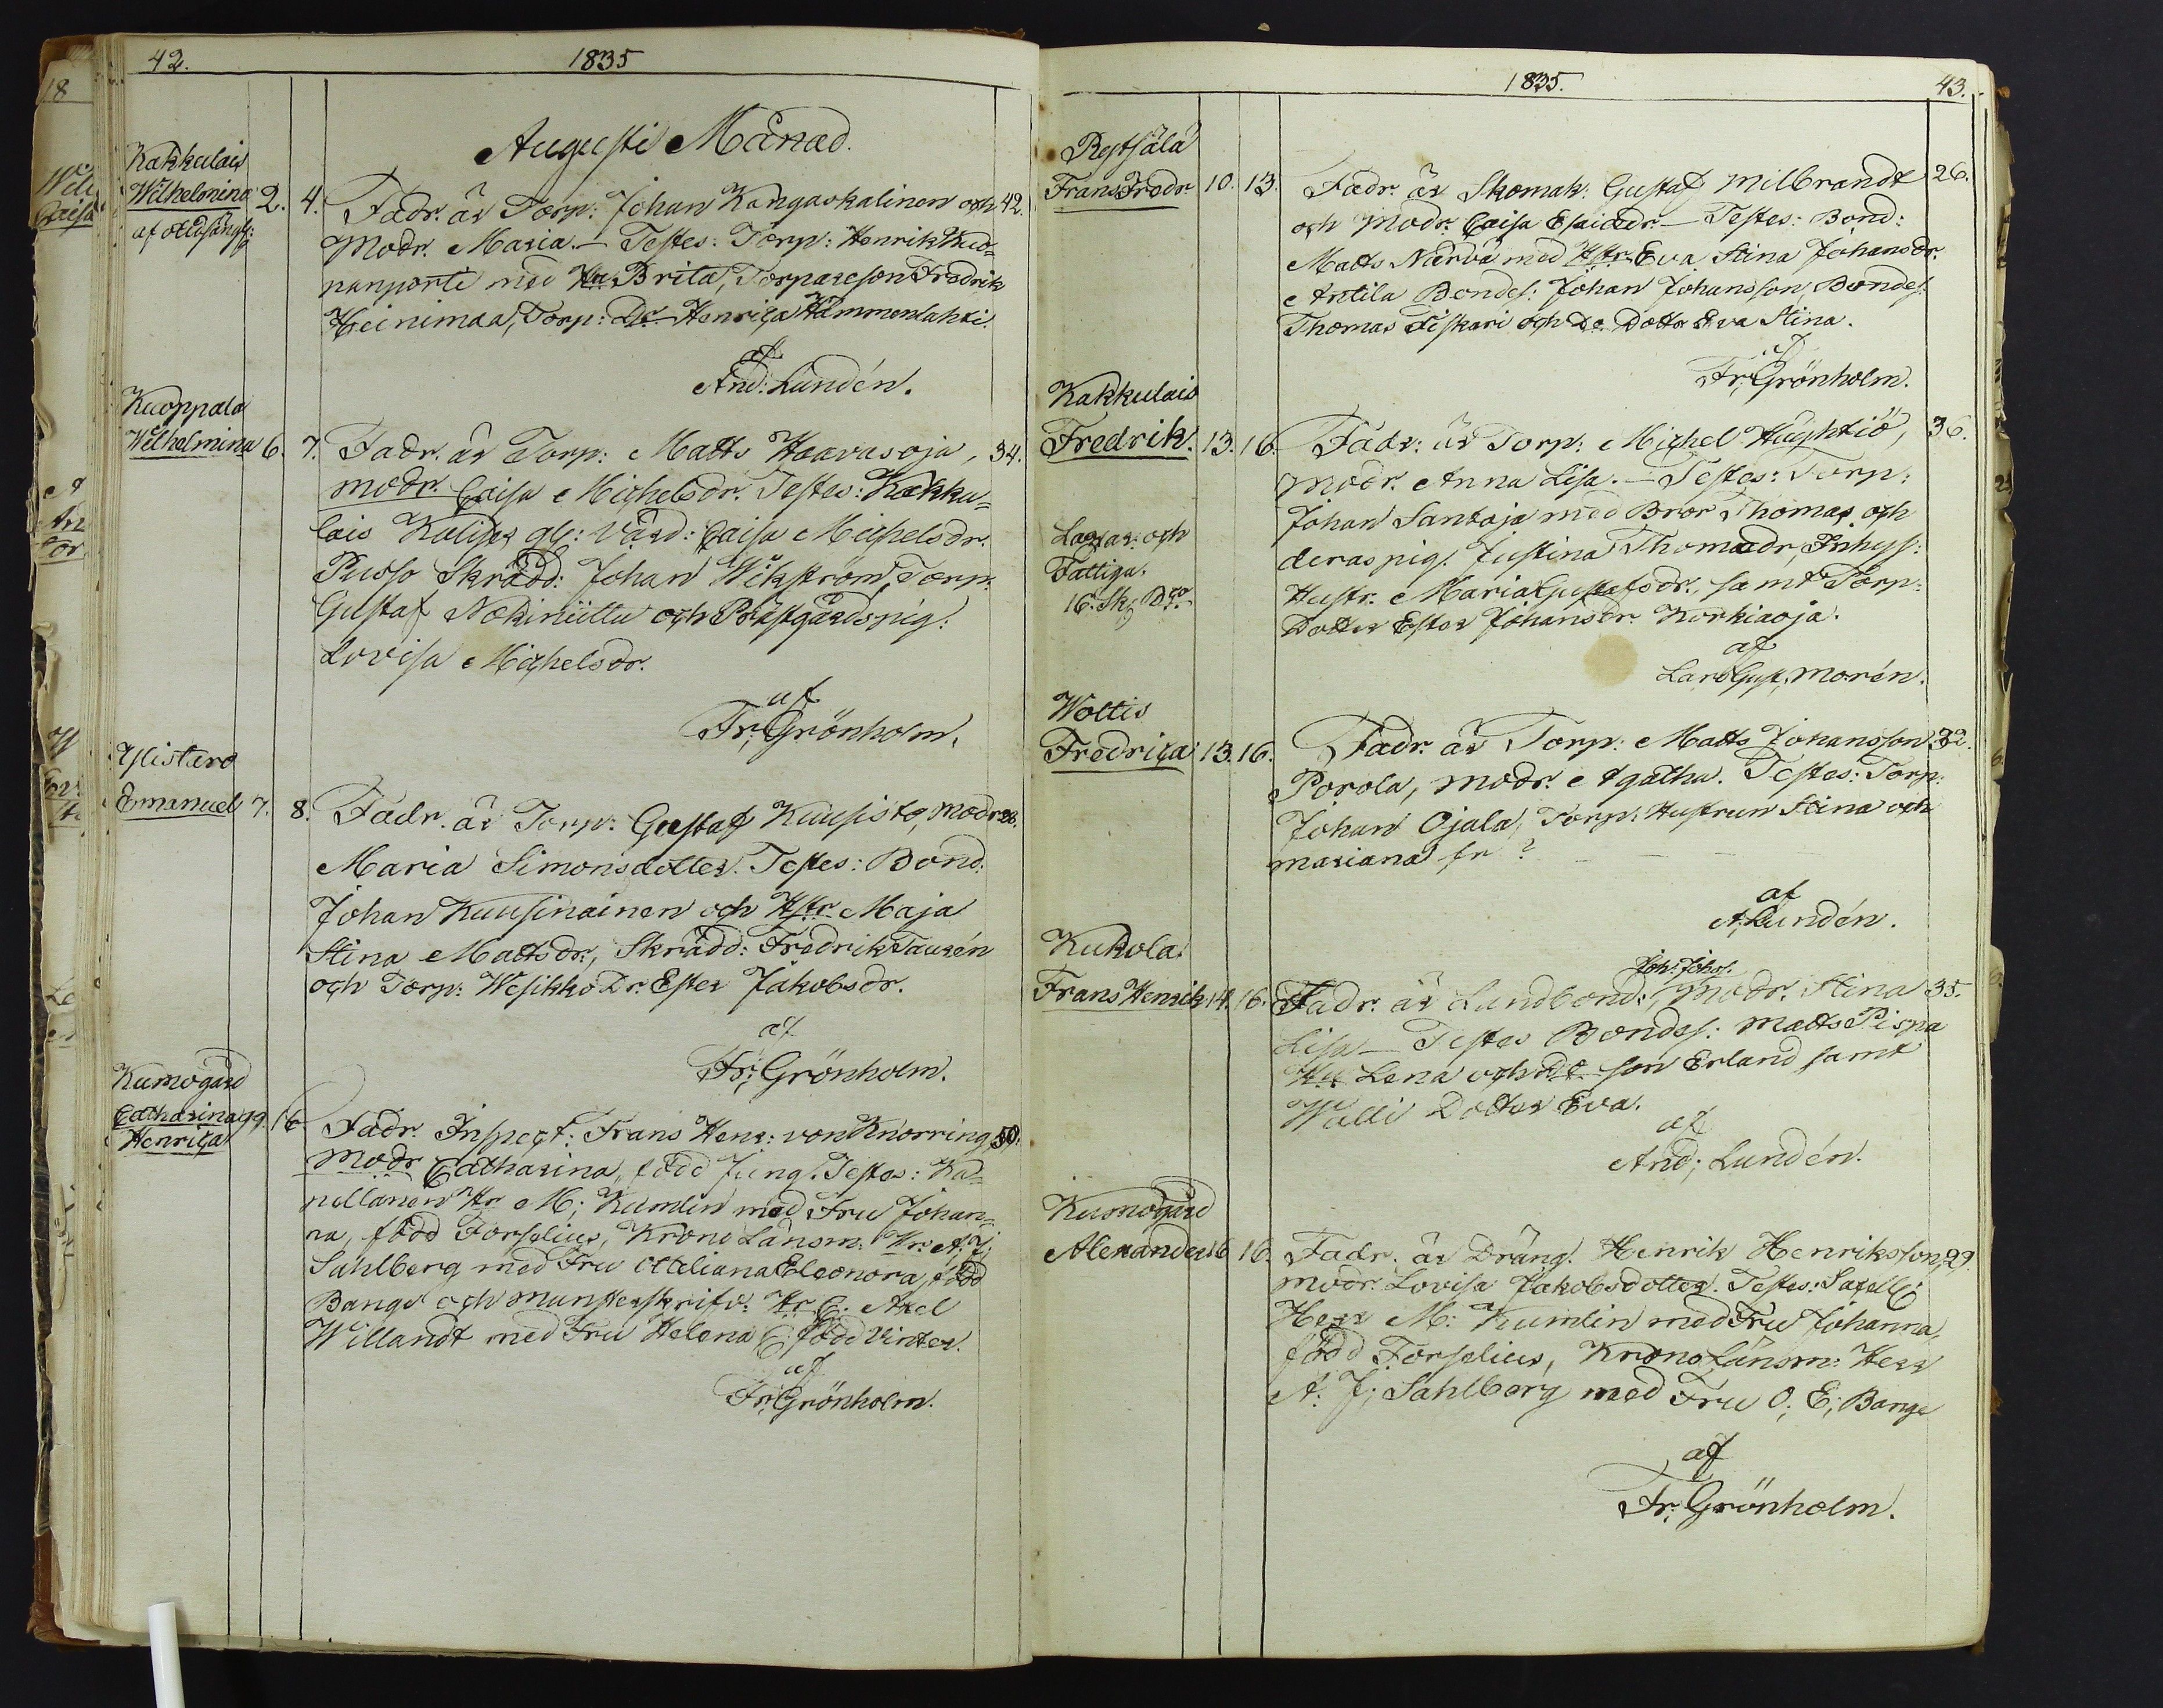 42.
1835
Augusti Månad.
Kakkulais
Wilhelmina 2. 4. Fadr. är Torp: Johan Kangaskalinen och 42.
af oäkta säng
Modr. Maria. — Testes: Torp: Henrik Kuo=
nanportti med Hu Brita, Torpareson Fredrik
Heinimaa, Torp: Dr. Henrica Hammenlahti.
af
And: Lundén.
Kuoppala
Wilhelmina 6. 7. Fadr. är Torp: Matts Haavasoja, 34.
modr. Caisa Michelsdr. Testes: Kakku=
lais Kalises gl: Värd: Caisa Michelsdr.
Puoso Skrädd: Johan Wikström, Torp:
Gustaf Nokiniittu och Prästgårdspig:
Lovisa Michelsdr.
af
Fr; Grönholm.
Ylistaro
Emanuel 7. 8. Fadr. är Torp: Gustaf Kuusisto, Modr 28.
Maria Simonsdotter. Testes: Bond:
Johan Kuusinainen och Hstr Maja
Stina Mattsdr., Skrädd: Fredrik Tausén
och Torp: Wesikko Dr. Ester Jakobsdr.
af
Fr; Grönholm.
Kumogård
Catharina 9. 16. Fadr. Inspect: Frans Henr: von Knorring 50.
Henrica
modr Catharina, född Jung. Testes: Ka=
pellanen Hr M; Kumlin med Fru Johan=
na, född Forselius, Krono Länsm: Hr. A. J;
Sahlberg med Fru Ottiliana Eleonora, född
Bange och Munsterskrifv: Hr C. Axel
Willandt med Fru Helena C, född Winter.
af
Fr; Grönholm.
1835.
43.
Restsälä
Frans Fredr. 10. 13. Fadr. är Skomak: Gustaf Milbrandt 26.
och Modr. Caisa Esaiædr. — Testes: Bond:
Matts Nærvä med Hstr Eva Stina Johansdr.
Antila Bondes: Johan Johansson, Bondes:
Thomas Fiskari och Do Dottr Eva Stina.
af
Fr; Grönholm.
Kakkulais
Fredrik. 13. 16. Fadr: är Torp: Michel Huhtiö, 36.
Modr. Anna Lisa. — Testes: Torp:
Johan Santaja med Bror Thomas och
Lazar: och
Fattiga.
16. Sk; Bco
deras pig. Justina Thomædr, Inhys:
Hustr. Maria Gustafsdr., samt Torp:
Dotter Ester Johansdr. Korkiaoja.
af
Lars Gust; Morén.
Woltis
Fredrica 13. 16. Fadr. är Torp: Matts Johansson 32.
Porola, modr. Agatha. Testes: Torp:
Johan Ojala, Torp: Hustrun Stina och
mariana fr ?
af
A; Lundén.
Kukola
Joh: Johss.
Frans Henrik 14. 16. Fadr. är Landbond:, Modr. Stina 35.
Lisa — Testes Bondes: Matts Pispa
Hu Lena och Do son Erland samt
Wälli Dotter Eva.
af
And; Lundén.
Kumogård
Alexander 16 16. Fadr. är Dräng. Henrik Henriksson, 29.
modr. Lovisa Jakobsdotter. Testes: Sacell:
Herr M: Kumlin med Fru Johanna,
född Forselius, Krono Länsm: Herr
A. J; Sahlberg med Fru O; E; Bange
af
Fr; Grönholm.